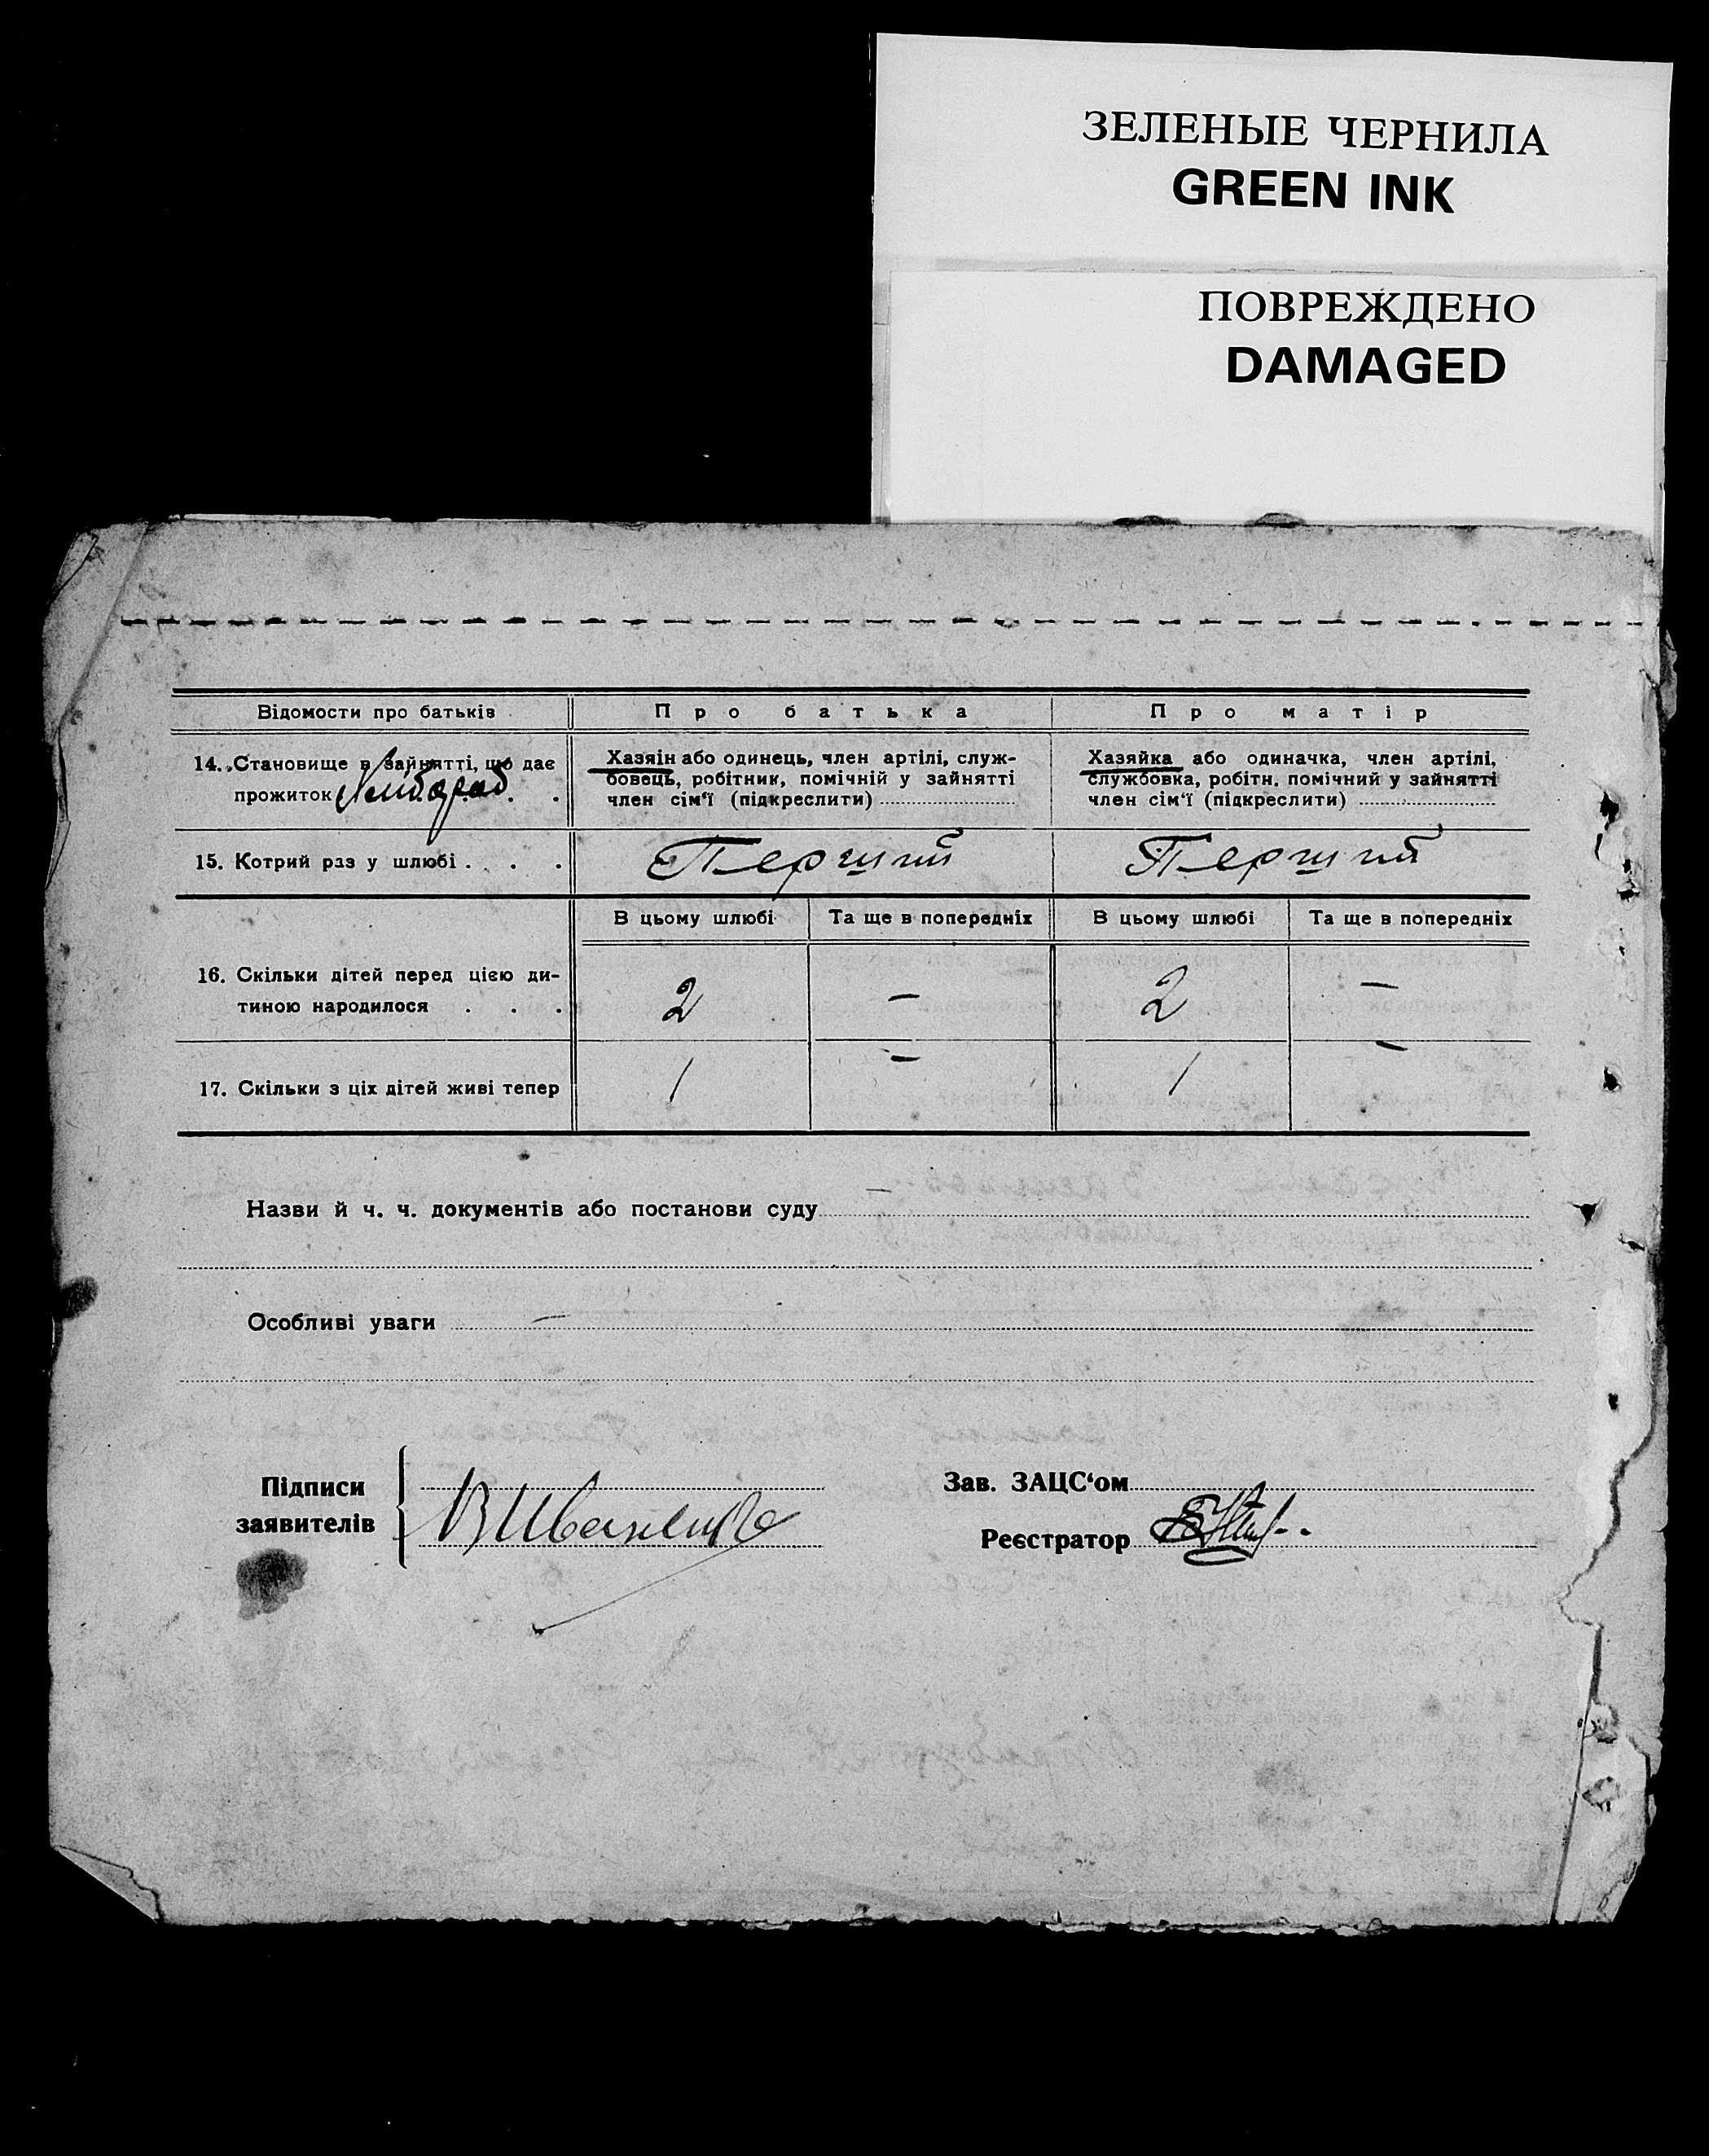 ЗЕЛЕНЫЕ ЧЕРНИЛА
GREEN INK
ПОВРЕЖДЕНО
DAMAGED
Відомости про батьків
Про батька
Про матір
14. Становище в зайнятті, що дає
прожиток Хлібороб
Хазяін або одинець, член артілі, служ-
бовець, робітник, помічній у зайнятті
член сім‘ї (підкреслити)
Хазяйка або одиначка, член артілі,
службовка, робітн. помічний у зайнятті
член сім‘ї (підкреслити)
15. Котрий раз у шлюбі . . .
Перший
Перший
В цьому шлюбі
Та ще в попередніх
В цьому шлюбі
Та ще в попередніх
16. Скільки дітей перед цією ди-
тиною народилося . . .
2
—
2
—
17. Скільки з ціх дітей живі тепер
1
—
1
—
Назви й ч. ч. документів або постанови суду —
Особливі уваги —
Підписи
заявителів
В Иваненко
Зав. ЗАЦС‘ом
Реєстратор